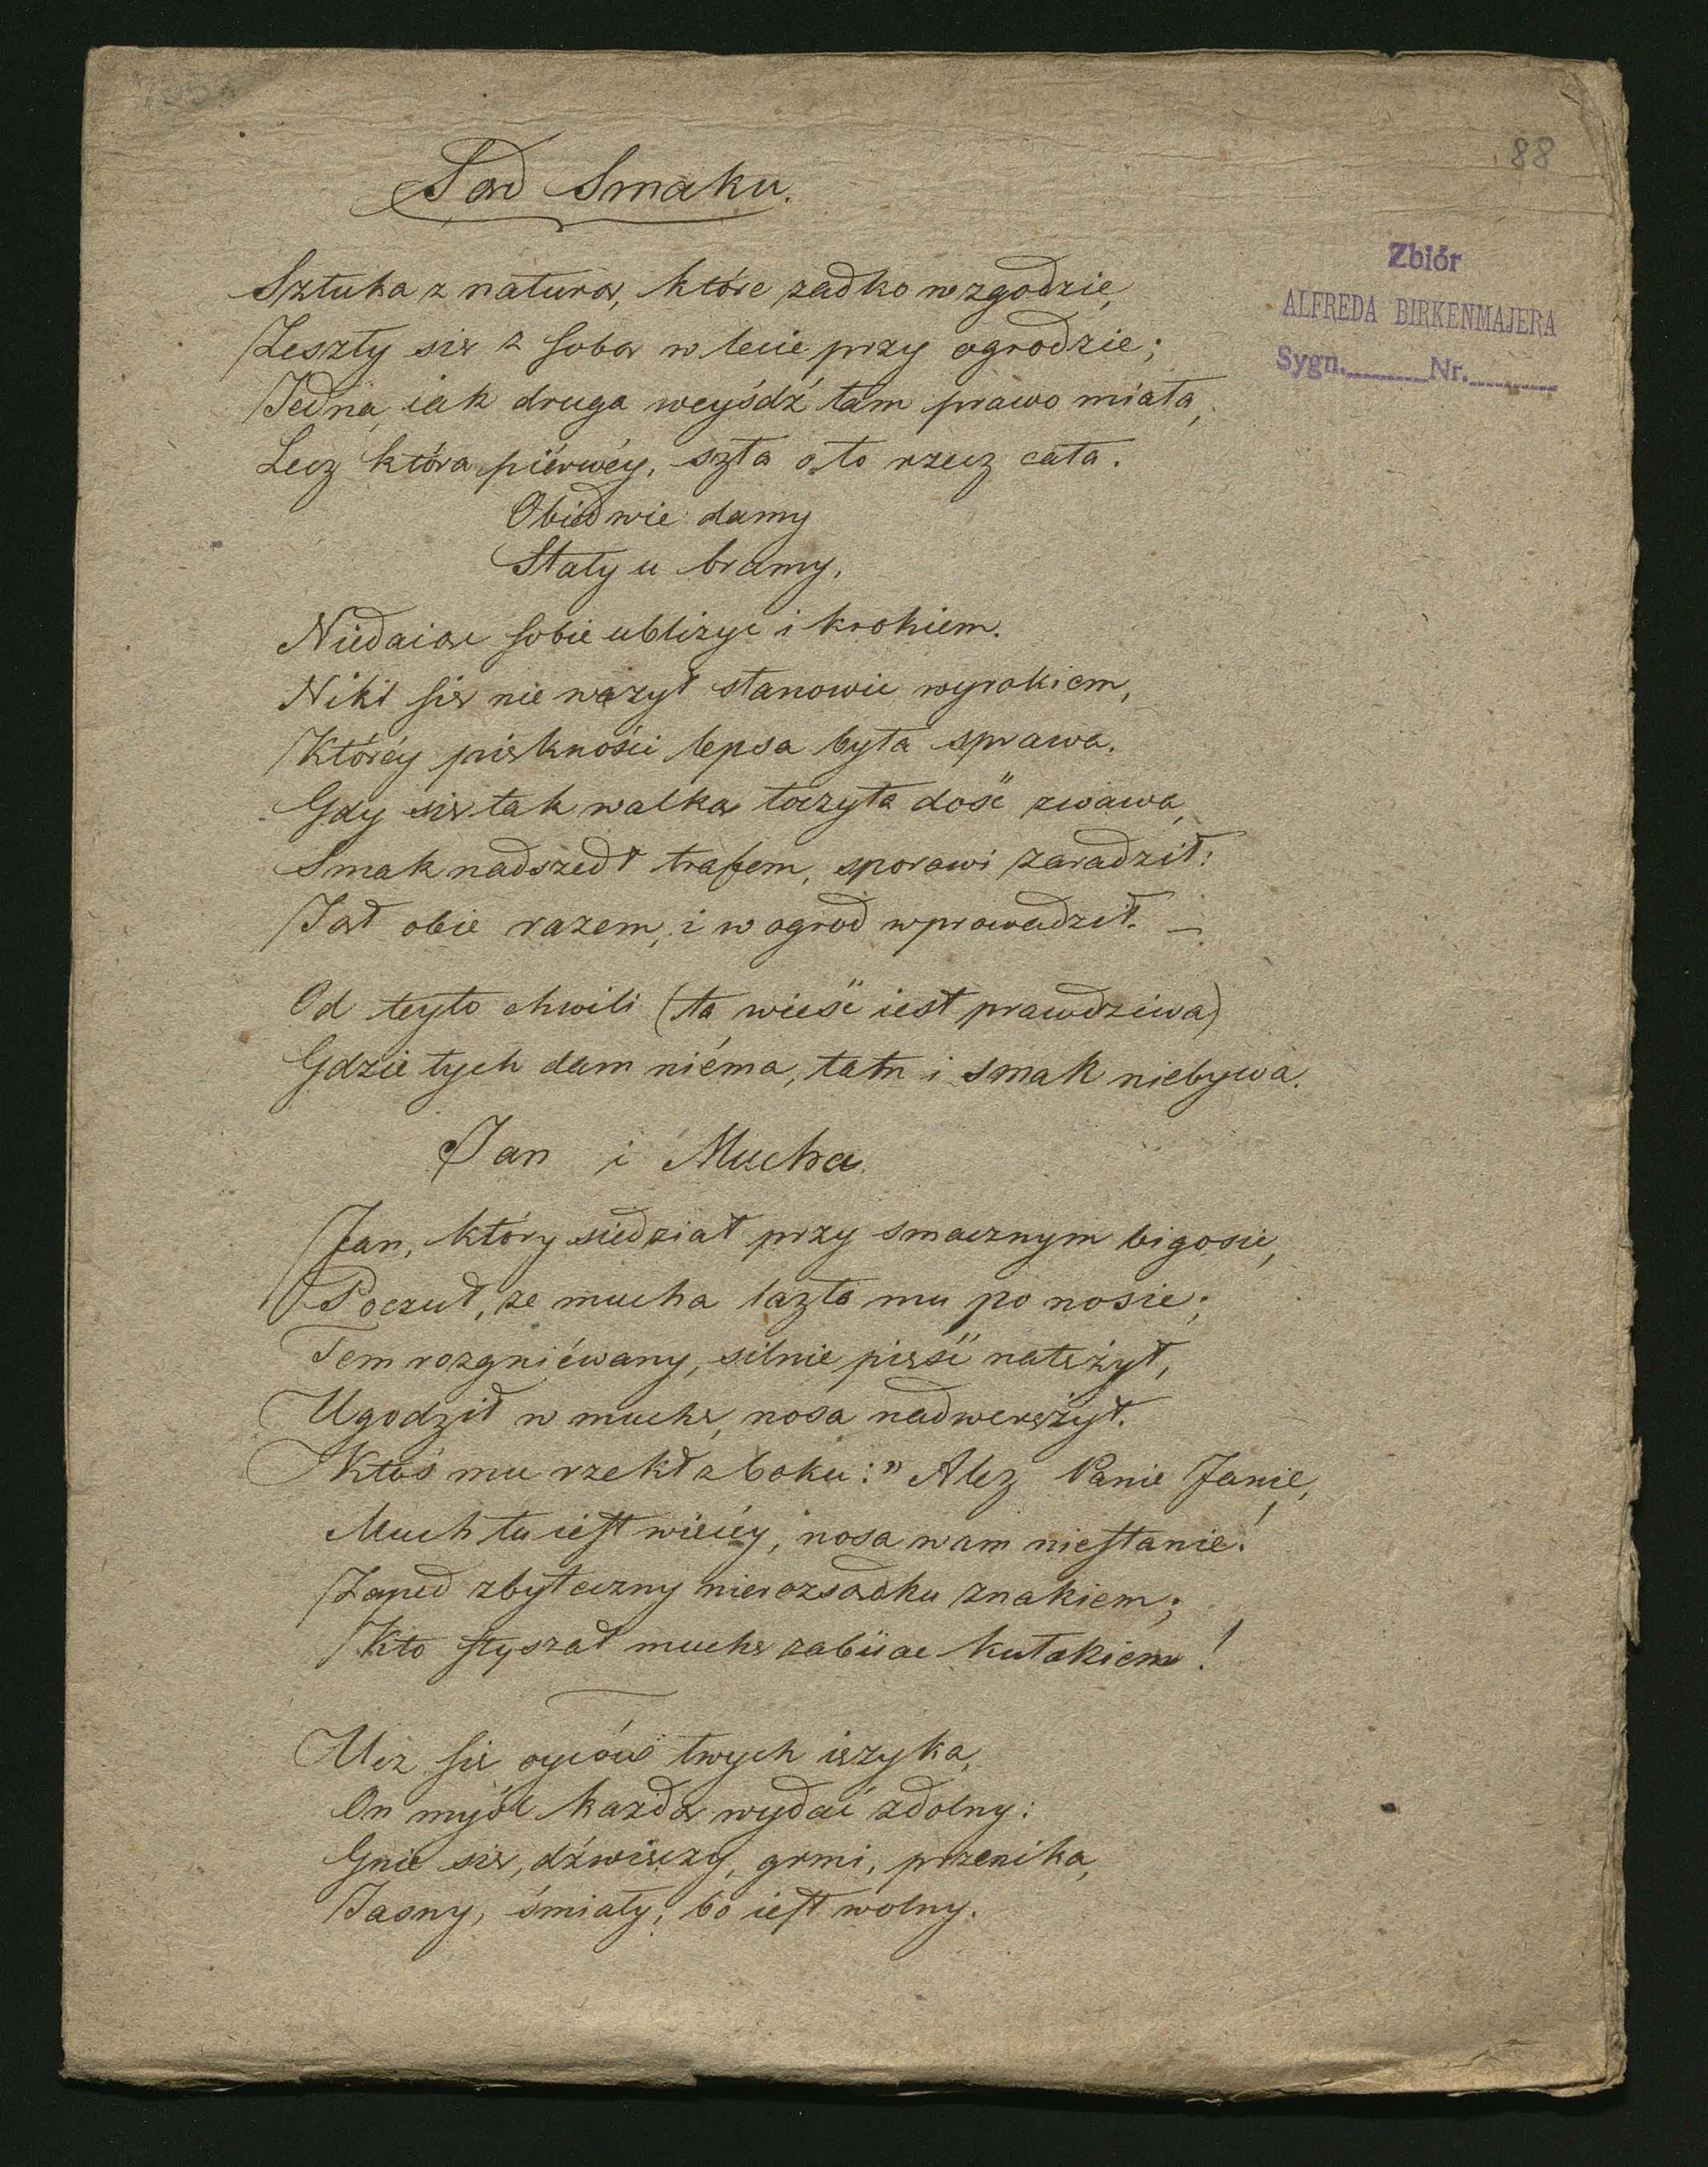 88
Sąd Smaku.
Zbiór
ALFREDA BIRKENMAJERA
Sygn. Nr.
Sztuka z naturą, które zadko w zgodzie,
Zeszły się z sobą w lecie przy ogrodzie;
Jedna, iak druga weyśdź tam prawo miała,
Lecz która piérwéy, szła o to rzecz cała.
Obiedwie damy
Stały u bramy,
Niedaiąc sobie ubliżyc i krokiem.
Nikt się nie ważył stanowić wyrokiem,
Któréy piękności lepsa była sprawa.
Gdy się tak walka toczyła dość żwawa,
Smak nadszedł trafem, sporowi zaradził:
Jął obie razem, i w ogrod wprowadził. —
Od teyto chwili (ta wieść iest prawdziwa)
Gdzie tych dam niéma, tam i smak niebywa.
Jan i Mucha
Jan, który siedział przy smacznym bigosie,
Poczuł, ze mucha łazła mu po nosie;
Tem rozgniéwany, silnie pięść natężył,
Ugodził w muchę, nosa nadwerężył.
Ktoś mu rzekł z boku: " Alez Panie Janie,
Much tu iest więcéy, nosa wam niestanie!
Zapęd zbyteczny nierozsądku znakiem;
Kto słyszał muchę zabiiac kułakiem!
Ucz się oyców twych ięzyka,
On myśl kazdą wydać zdolny:
Gnie się, dźwięczy, grmi, przenika,
Jasny, śmiały, bo iest wolny.